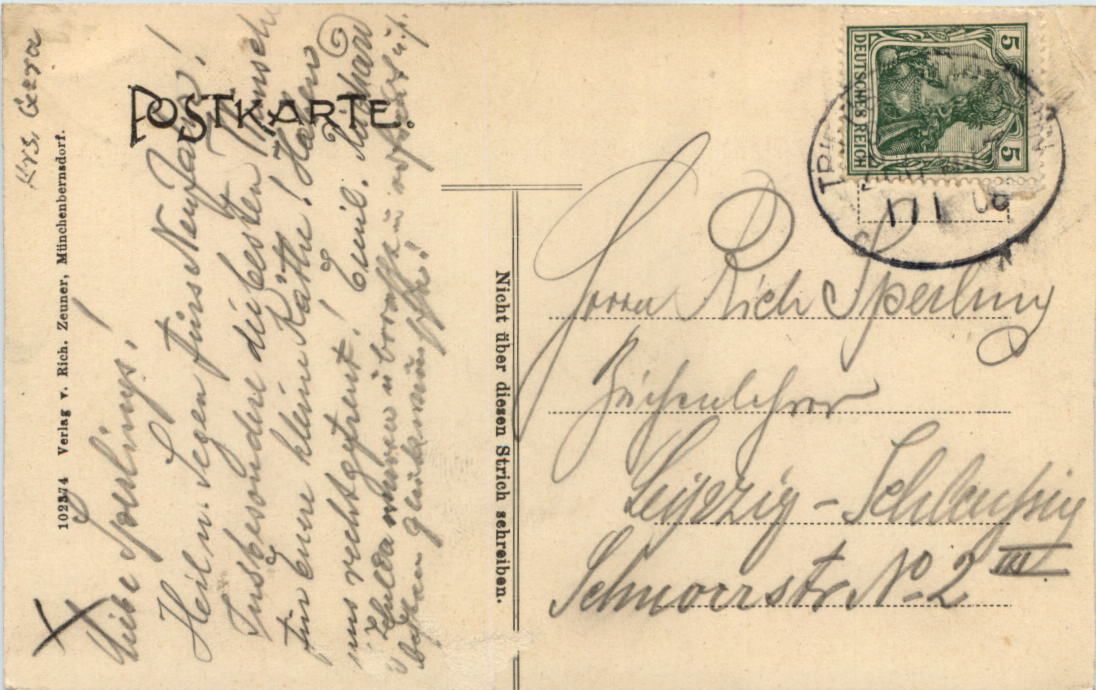 POSTKARTE.
Krs. Gera
102374 Verlag v. Rich. Zeuner, Münchenbernsdorf.
Liebe Sperlings!
Heil u. Segen fürs Neujahr!
Insbesondere die besten Wünsche
für Eure kleine Käthe! Haben
uns recht gefreut! Emil. Richard
besten Glückwünsche!
Nicht über diesen Strich schreiben.
DEUTSCHES REICH
5 5
Herrn Rich Sperling
Leipzig - Schleussig
Schnorrstr No 2 III